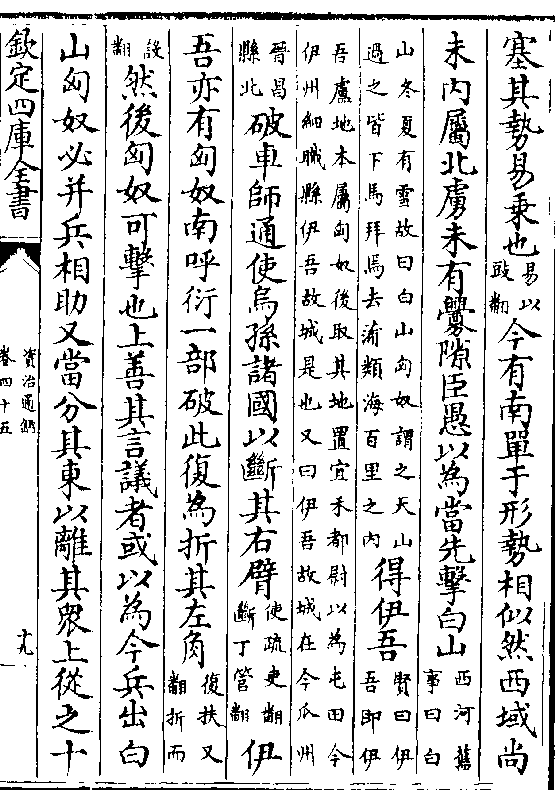 塞其勢易乗也易以豉翻今有南單于形勢相似然西域尚
未内屬北虜未有釁隙臣愚以為當先擊白山西河舊事曰白
山冬夏有雪故曰白山匈奴謂之天山過之皆下馬拜焉去蒲類海百里之内得伊吾賢曰伊吾即伊
吾盧地本屬匈奴後取其地置宜禾都尉以為屯田今伊州細職縣伊吾故城是也又曰伊吾故城在今瓜州
晉昌縣北破車師通使烏孫諸國以斷其右臂使疏吏翻斷丁管翻伊
吾亦有匈奴南呼衍一部破此復為折其左角復扶又翻折而
設翻然後匈奴可擊也上善其言議者或以為今兵出白
山匈奴必并兵相助又當分其東以離其衆上從之十
欽定四庫全書
資治通鑑
卷四十五
十九